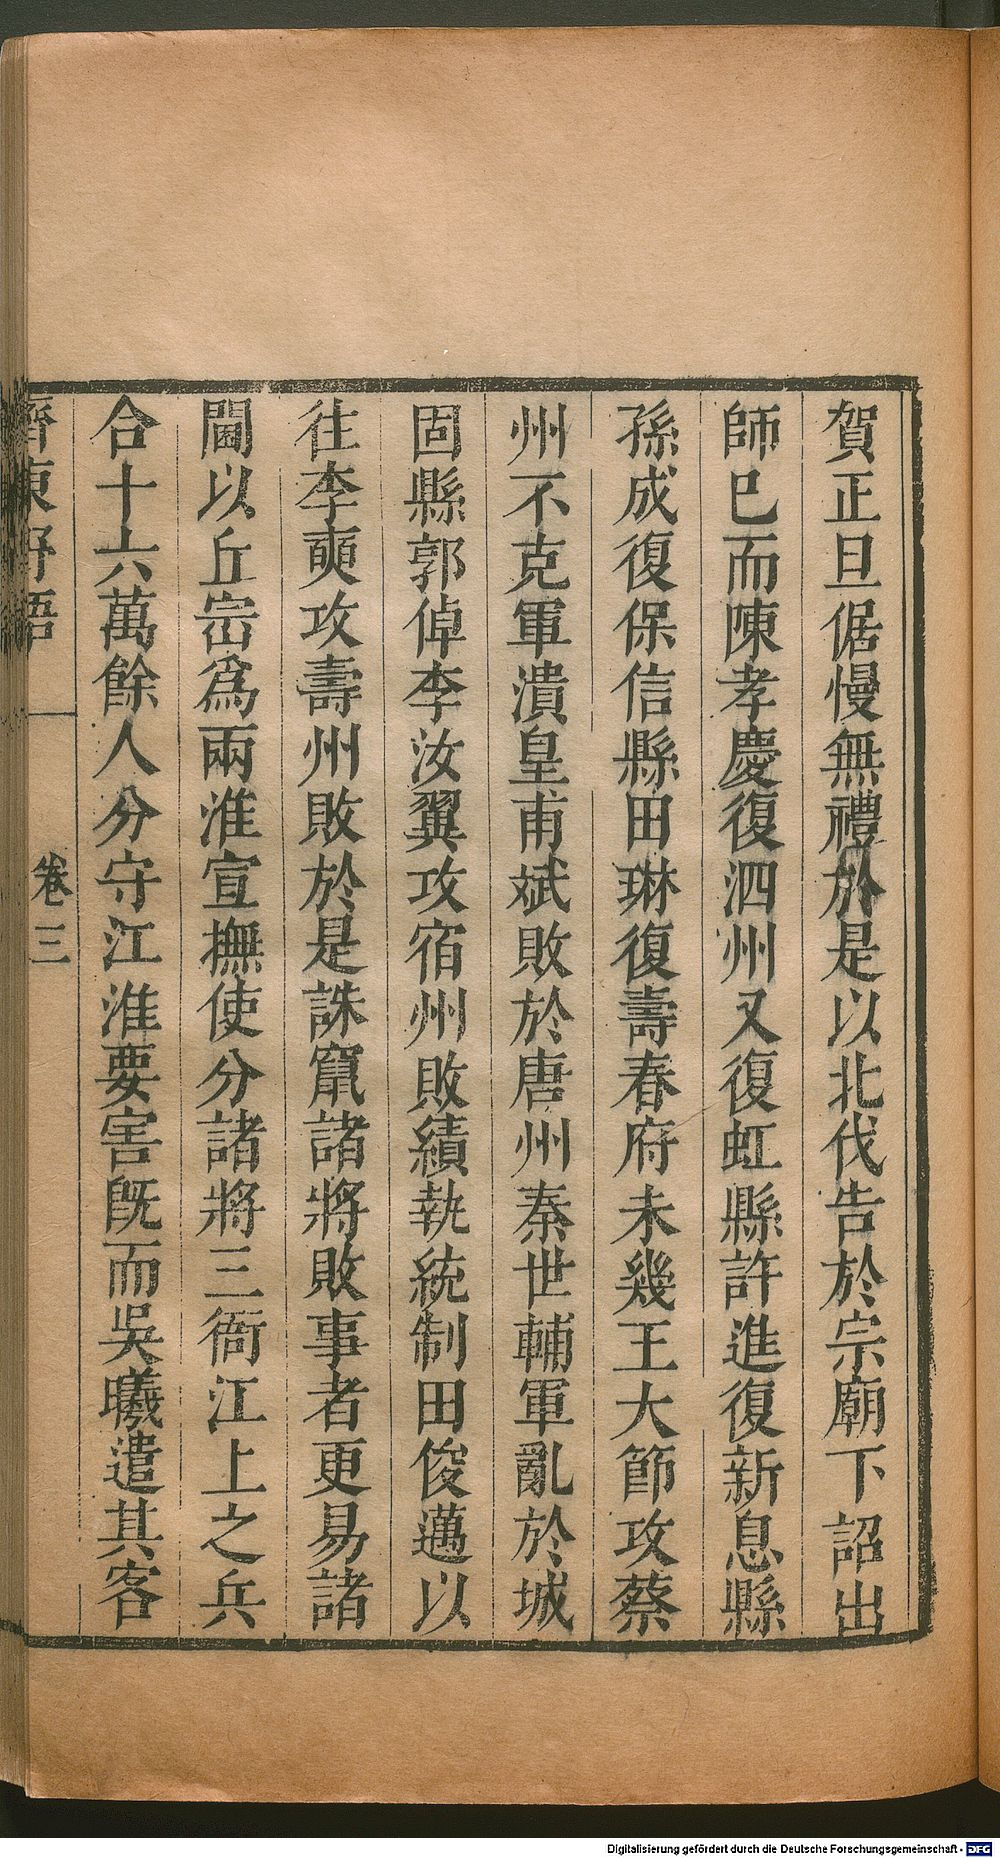 賀正旦倨慢無禮於是以北伐告於宗廟下詔出
師已而陳孝慶復泗州又復虹縣許進復新息縣
孫成復保信縣田琳復壽春府未幾王大節攻蔡
州不克軍潰皇甫斌敗於唐州秦世輔軍亂於城
固縣郭倬李汝翼攻宿州敗績執統制田俊邁以
往李奭攻壽州敗於是誅竄諸將敗事者更易諸
閫以丘崈爲兩淮宣撫使分諸將三衙江上之兵
合十六萬餘人分守江淮要害旣而吳曦遣其客
齊東野語 卷三
Digitalisierung gefördert durch die Deutsche Forschungsgemeinschaft - DFG